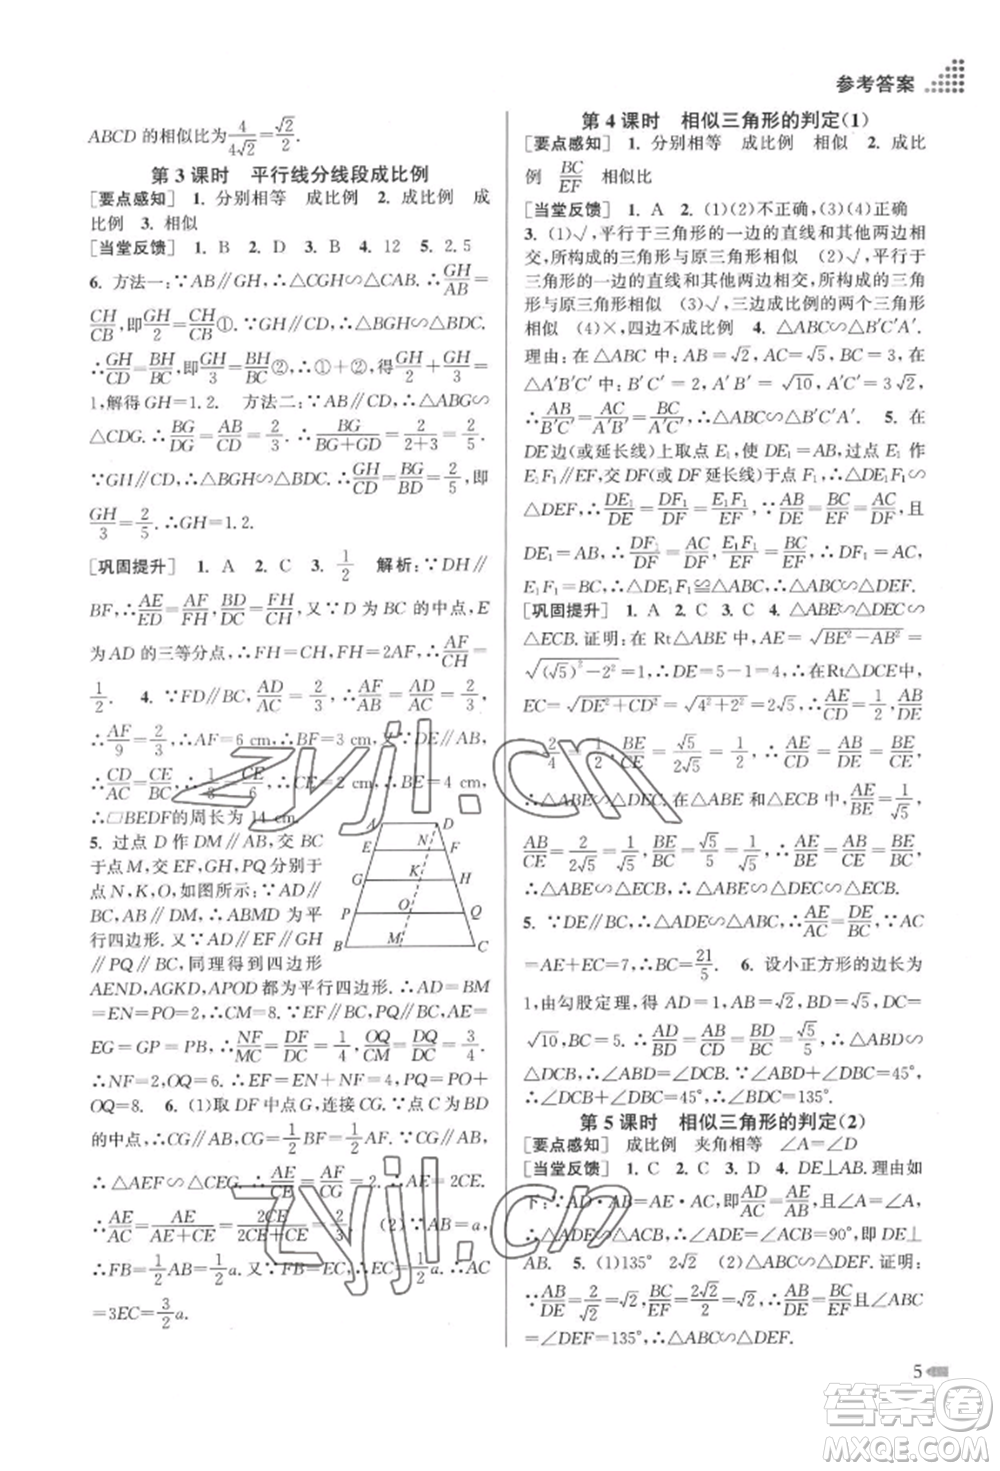 参考答案
ABCD 的相似比为 4/(4√2)=√2/2.
第 3 课时　平行线分线段成比例
[要点感知]　1. 分别相等　成比例　2. 成比例　成
比例　3. 相似
[当堂反馈]　1. B　2. D　3. B　4. 12　5. 2.5
6. 方法一:∵AB∥GH,∴△CGH∽△CAB.∴GH/AB=
CH/CB,即GH/2=CH/CB①.∵GH∥CD,∴△BGH∽△BDC.
∴GH/CD=BH/BC,即GH/3=BH/BC②.①+②得GH/2+GH/3=
1,解得 GH=1.2.　方法二:∵AB∥CD,∴△ABG∽
△CDG.∴BG/DG=AB/CD=2/3.∴BG/(BG+GD)=2/(2+3)=2/5.
∵GH∥CD,∴△BGH∽△BDC.∴GH/CD=BG/BD=2/5,即
GH/3=2/5.∴GH=1.2.
[巩固提升]　1. A　2. C　3. 1/2　解析:∵DH∥
BF,∴AE/ED=AF/FH,BD/CD=FH/CH,又∵D为BC的中点,E
为AD的三等分点,∴FH=CH,AF/FH=1/2.∴AF/CH=
1/2.　4. ∵FD∥BC,AD/AC=2/3,∴AF/AB=AD/AC=2/3,
∴AF/9=2/3,∴AF=6 cm,∴BF=3 cm,∵DE∥AB,
∴CD/AC=CE/BC,∴1/3=CE/6,∴CE=2 cm,∴BE=4 cm,
∴▱BEDF的周长为 14 cm.
5. 过点 D 作 DM∥AB,交 BC
于点 M,交 EF,GH,PQ 分别于
点 N,K,O,如图所示:∵AD∥
BC,AB∥DM,∴ABMD 为平
行四边形.又∵AD∥EF∥GH
∥PQ∥BC,同理得到四边形
A D
E N F
G K H
P O Q
B M C
AEND,AGKD,APOD 都为平行四边形.∴AD=BM
=EN=PO=2,∴CM=8.∵EF∥PQ∥BC,AE=
EG=GP=PB,∴NF/MC=DF/DC=1/4,OQ/MC=DQ/DC=3/4.
∴NF=2,OQ=6.∴EF=EN+NF=4,PQ=PO+
OQ=8.　6. (1)取 DF 中点 G,连接 CG.∵C为BD
的中点,∴CG∥BF,CG=1/2BF=1/2AB.∵CG∥AB,
∴△AEF∽△CEG.∴AE/CE=AF/CG=2.∴AE=2CE.
∴AE/AC=AE/(AE+CE)=2CE/(2CE+CE)=2/3.　(2)∵AB=a,
∴FB=1/2AB=1/2a.又∵FB=EC,∴EC=1/2a.∴AC
=3EC=3/2a.
第 4 课时　相似三角形的判定(1)
[要点感知]　1. 分别相等　成比例　相似　2. 成比
例　BC/EF　相似比
[当堂反馈]　1. A　2. (1)(2)不正确,(3)(4)正确
3. (1)√,平行于三角形的一边的直线和其他两边相
交,所构成的三角形与原三角形相似　(2)√,平行于
三角形的一边的直线和其他两边相交,所构成的三角
形与原三角形相似　(3)√,三边成比例的两个三角形
相似　(4)×,四边不成比例　4. △ABC∽△B′C′A′.
理由:在△ABC 中,AB=√2,AC=√5,BC=3,在
△A′B′C′中,A′C′=2,B′C′=√10,A′B′=3√2,
∴AB/B′C′=AC/A′B′=BC/A′C′,∴△ABC∽△B′C′A′.　5. 在
DE边(或延长线)上取点 E₁,使 DE₁=AB,过点 E₁作
E₁F₁∥EF,交 DF(或 DF 延长线)于点 F₁,∴△DE₁F₁∽
△DEF,∴DE₁/DE=DF₁/DF=E₁F₁/EF,∵AB/DE=AC/DF=BC/EF,且
DE₁=AB,∴DF₁/DF=AC/DF,E₁F₁/EF=BC/EF,∴DF₁=AC,
E₁F₁=BC,∴△DE₁F₁≌△ABC,∴△ABC∽△DEF.
[巩固提升]　1. A　2. C　3. C　4. △ABE∽△DCE∽
△ECB.证明:在 Rt△ABE 中,AE=√(BE²−AB²)=
√((√5)²−2²)=1,∴DE=5−1=4,在Rt△DCE中,
EC=√(DE²+CD²)=√(4²+2²)=2√5,∵AE/CD=1/2,AB/DE=
2/4=1/2,BE/CE=√5/(2√5)=1/2,∴AE/CD=AB/DE=BE/CE,
∴△ABE∽△DCE,∵在△ABE和△ECB中,AE/BE=1/√5,
AB/CE=2/(2√5)=1/√5,BE/BC=√5/5=1/√5,∴AE/BE=AB/CE=BE/BC,
∴△ABE∽△ECB,∴△ABE∽△DCE∽△ECB.
5. ∵DE∥BC,∴△ADE∽△ABC,∴AE/AC=DE/BC,∵AC
=AE+EC=7,∴BC=21/5.　6. 设小正方形的边长为
1,由勾股定理,得 AD=1,AB=√5,BD=√2,DC=
√10,BC=5.∴AD/BD=AB/BC=BD/DC=√5/5,∴△ABD∽
△BDC,∴∠ABD=∠DBC,∵∠BDC=∠BAD=135°.
第 5 课时　相似三角形的判定(2)
[要点感知]　成比例　夹角相等　∠A=∠D
[当堂反馈]　1. C　2. C　3. D　4. DE⊥AB.理由如
下:∵AD·AB=AE·AC,即AD/AC=AE/AB,又∠A=∠A,
∴△ADE∽△ACB,∴∠ADE=∠ACB=90°,即DE⊥
AB.　5. (1)135°　2√2　(2)△ABC∽△DEF;证明:
∵AB/DE=2/√2=√2,BC/EF=2√2/2=√2,∴AB/DE=BC/EF,又∠ABC
=∠DEF=135°,∴△ABC∽△DEF.
5
zyjl.cn
zyjl.cn
答案圈
MXQE.COM